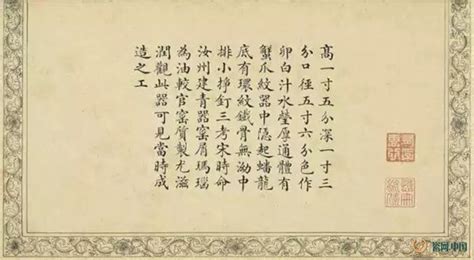 高一寸五分深一寸三
分口徑五寸六分色作
卵白汁水瑩厚通體有
蟹爪紋器中隱起蟠龍
底有環紋鐵骨無泑中
排小掙釘三考宋時命
汝州建青器窑屑瑪瑙
為油較官窑質製尤滋
潤觀此器可見當時成
造之工
瓷网.中国